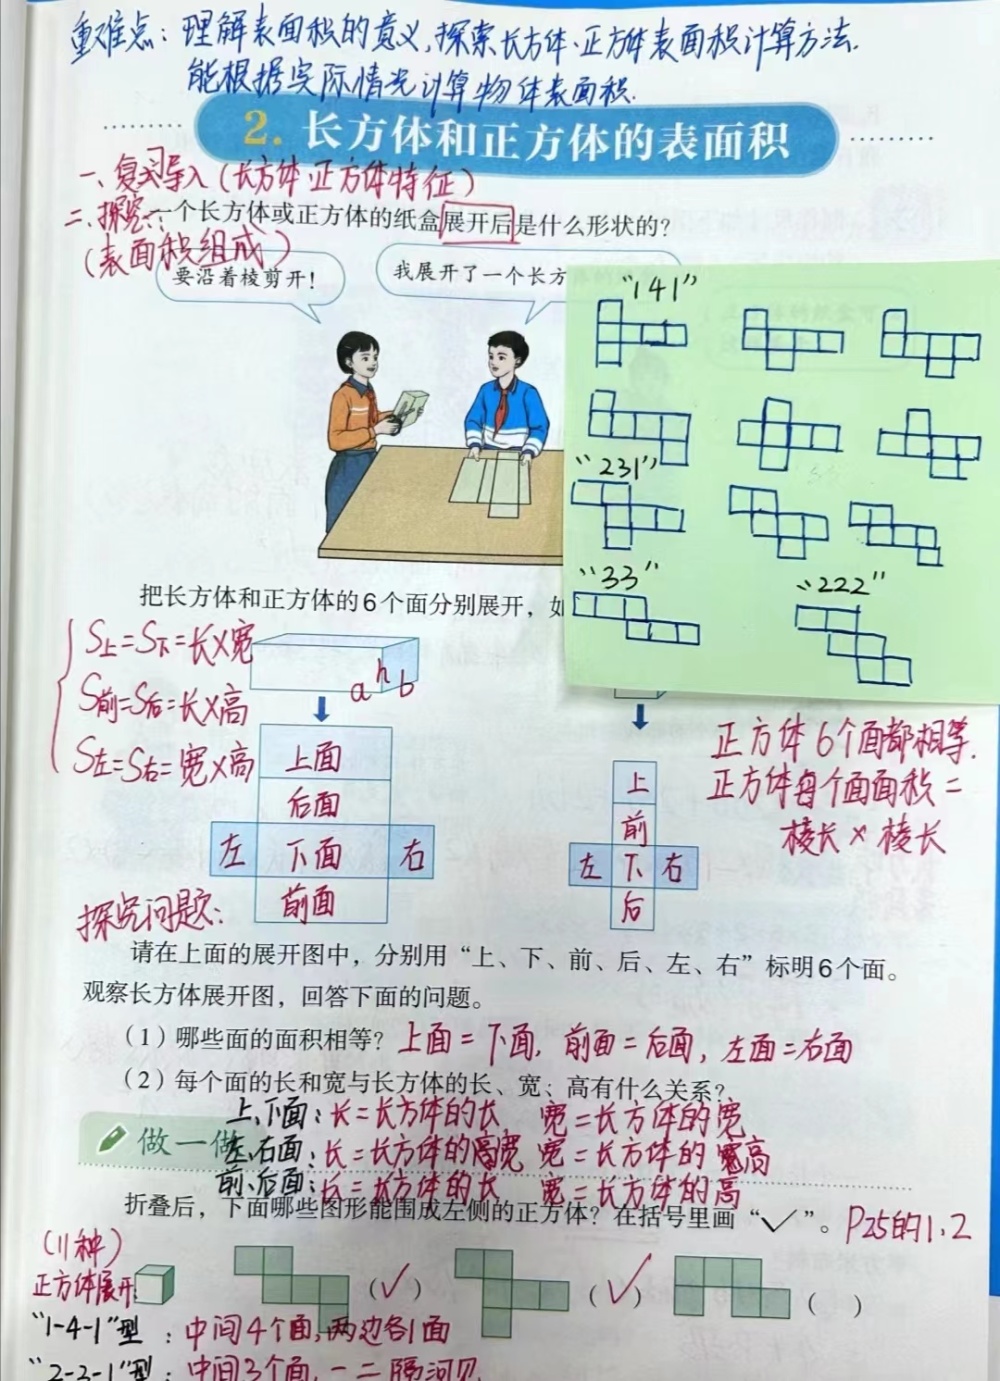 重难点：理解表面积的意义，探索长方体、正方体表面积计算方法.
能根据实际情况计算物体表面积.
2. 长方体和正方体的表面积
一、复习导入（长方体、正方体特征）
二、探究：一个长方体或正方体的纸盒展开后是什么形状的？
（表面积组成）
要沿着棱剪开！
我展开了一个长方
“141”
“231”
“33”
“222”
把长方体和正方体的6个面分别展开，如
S上=S下=长×宽
S前=S后=长×高
S左=S右=宽×高
a h b
上面
后面
左 下面 右
前面
上
前
左 下 右
后
正方体6个面都相等.
正方体每个面面积=
棱长×棱长
探究问题：
请在上面的展开图中，分别用“上、下、前、后、左、右”标明6个面。
观察长方体展开图，回答下面的问题。
（1）哪些面的面积相等？上面=下面，前面=后面，左面=右面
（2）每个面的长和宽与长方体的长、宽、高有什么关系？
上、下面：长=长方体的长 宽=长方体的宽
做一做
左、右面：长=长方体的宽 宽=长方体的高
前、后面：长=长方体的长 宽=长方体的高
折叠后，下面哪些图形能围成左侧的正方体？在括号里画“✓”。P25的1、2
（11种）
正方体展开
（✓） （✓） （ ）
“1-4-1”型：中间4个面，两边各1面
“2-3-1”型：中间3个面，一二隔河见